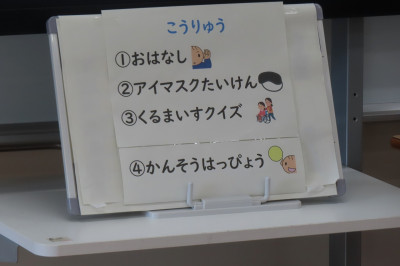 こうりゅう
①おはなし
②アイマスクたいけん
③くるまいすクイズ
④かんそうはっぴょう